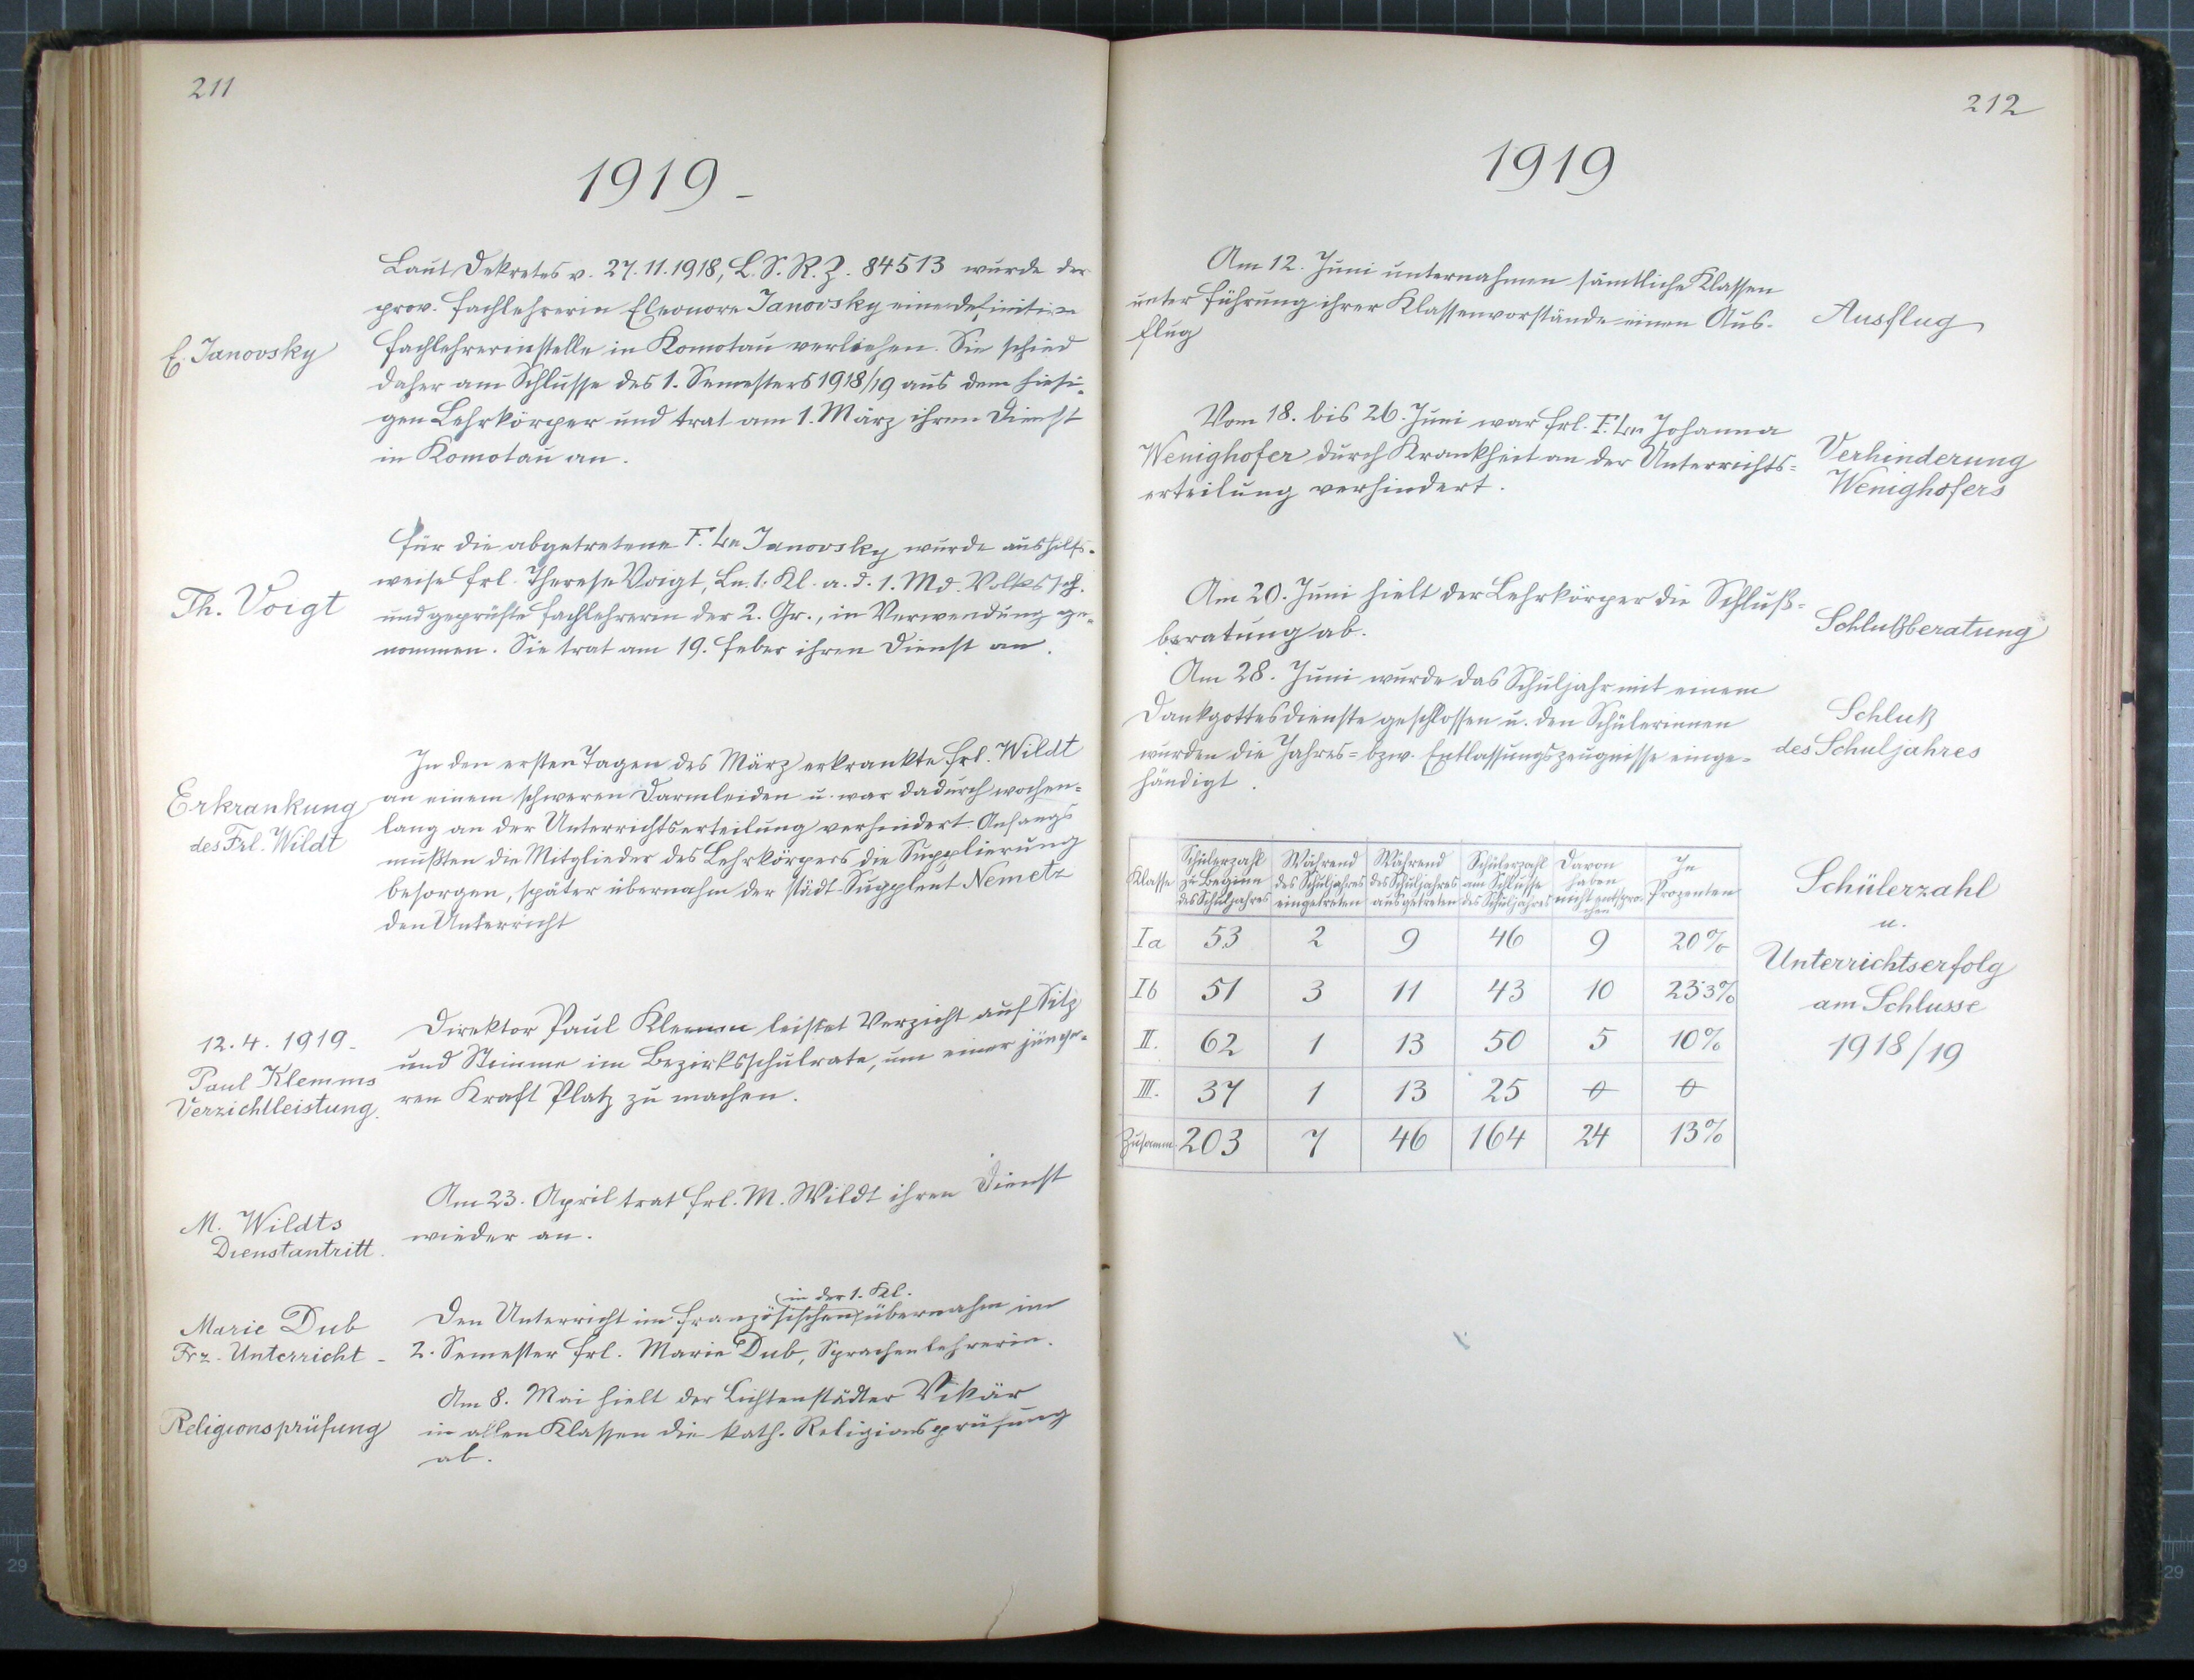 211
1919 -
Laut Dekretes v. 27.11.1918, L.S.R.Z. 84513 wurde der
prov. Fachlehrerin Eleonore Janovsky eine definitive
E. Janovsky
Fachlehrerinstelle in Komotau verliehen. Sie schied
daher am Schlusse des 1. Semesters 1918/19 aus dem hiesi-
gen Lehrkörper und trat am 1. März ihren Dienst
in Komotau an.
Für die abgetretene F. Ln Janovsky wurde aushilfs-
weise Frl. Therese Voigt, Ln. 1. Kl. a. d. 1. Md. Volkssch.
Th. Voigt
und geprüfte Fachlehrerin der 2. Gr., in Verwendung ge-
nommen. Sie trat am 19. Feber ihren Dienst an.
In den ersten Tagen des März erkrankte Frl. Wildt
Erkrankung
des Frl. Wildt
an einem schweren Darmleiden u. war dadurch wochen=
lang an der Unterrichtserteilung verhindert. Anfangs
mußten die Mitglieder des Lehrkörpers die Supplierung
besorgen, später übernahm der städt. Supplent Nemetz
den Unterricht
12.4. 1919.
Paul Klemms
Verzichtleistung.
Direktor Paul Klemm leistet Verzicht auf Sitz
und Stimme im Bezirksschulrate, um einer jünge-
ren Kraft Platz zu machen.
M. Wildts
Dienstantritt.
Am 23. April trat Frl. M. Wildt ihren Dienst
wieder an.
Marie Dub
Frz. Unterricht -
in der 1. Kl.
Den Unterricht im Französischen übernahm im
2. Semester Frl. Marie Dub, Sprachenlehrerin.
Religionsprüfung
Am 8. Mai hielt der Lichtenstädter Vikär
in allen Klassen die kath. Religionsprüfung
ab.
212
1919
Am 12. Juni unternahmen sämtliche Klassen
unter Führung ihrer Klassenvorstände einen Aus-
flug
Ausflug
Vom 18. bis 26. Juni war Frl. F. Ln Johanna
Wenighofer durch Krankheit an der Unterrichts=
erteilung verhindert.
Verhinderung
Wenighofers
Am 20. Juni hielt der Lehrkörper die Schluß=
beratung ab.
Schlußberatung
Am 28. Juni wurde das Schuljahr mit einem
Dankgottesdienste geschlossen u. den Schülerinnen
wurden die Jahres= bzw. Entlassungszeugnisse einge=
händigt.
Schluß
des Schuljahres
Klasse Schülerzahl zu Beginn des Schuljahres Während des Schuljahres eingetreten Während des Schuljahres ausgetreten Schülerzahl am Schlusse des Schuljahres Davon haben nicht entsprochen In Prozenten
Ia 53 2 9 46 9 20%
Ib 51 3 11 43 10 23·3%
II. 62 1 13 50 5 10%
III. 37 1 13 25 0 0
Zusamm. 203 7 46 164 24 13%
Schülerzahl
u.
Unterrichtserfolg
am Schlusse
1918/19
29
29